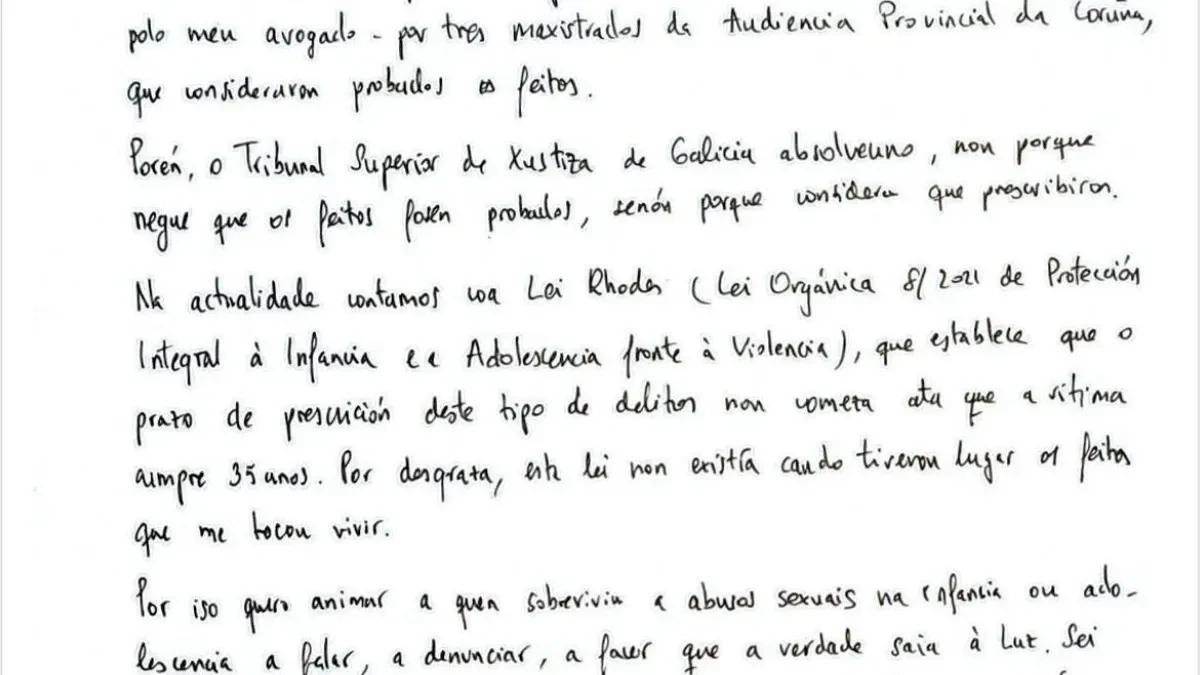 polo meu avogado - por tres maxistrados da Audiencia Provincial da Coruña,
que consideraron probados os feitos.
Porén, o Tribunal Superior de Xustiza de Galicia absolveuno, non porque
negue que os feitos fosen probados, senón porque considera que prescribiron.
Na actualidade contamos coa Lei Rhodes (Lei Orgánica 8/2021 de Protección
Integral à Infancia e a Adolescencia fronte à Violencia), que establece que o
prazo de prescrición deste tipo de delitos non comeza ata que a vítima
cumpre 35 anos. Por desgraza, esta lei non existía cando tiveron lugar os feitos
que me tocou vivir.
Por iso quero animar a quen sobreviviu a abusos sexuais na infancia ou ado-
lescencia a falar, a denunciar, a facer que a verdade saia à luz. Sei